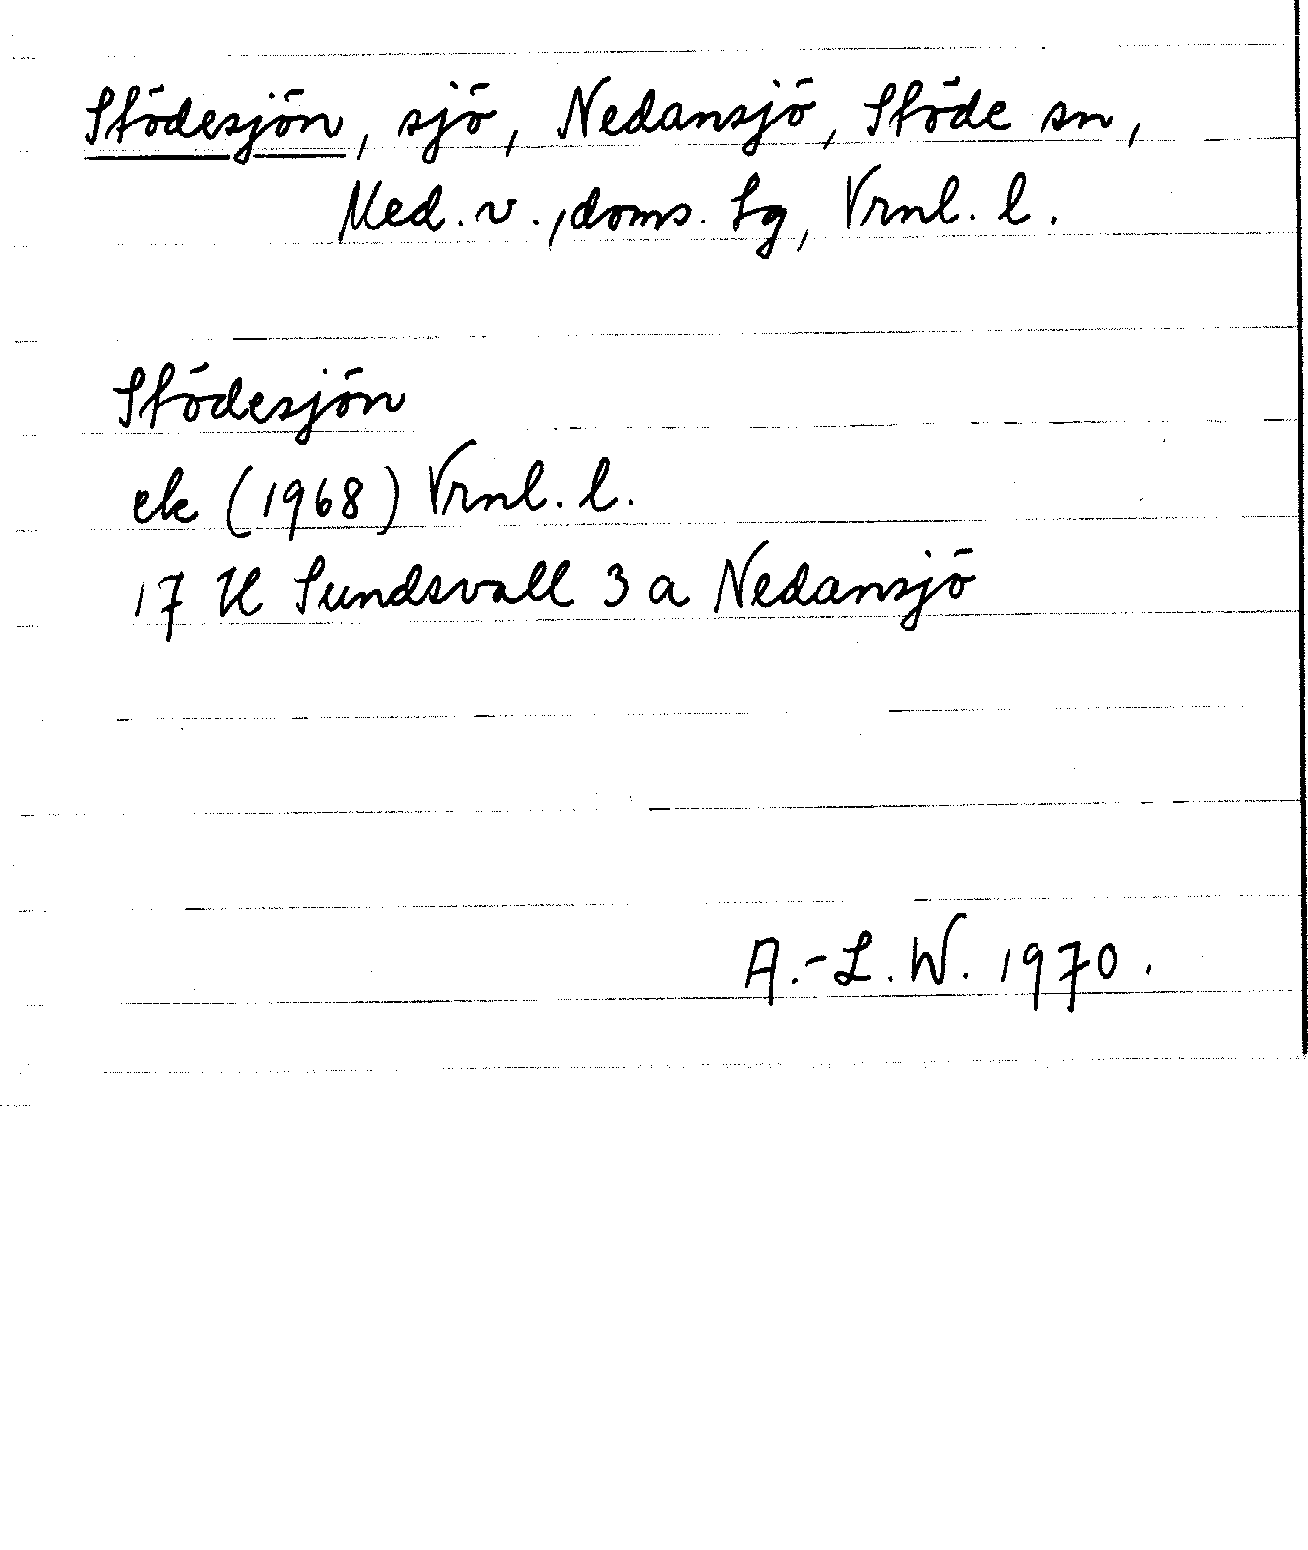 Stödesjön, sjö, Nedansjö, Stöde sn,
Med. v., doms. Lg, Vrnl. l.
Stödesjön
ek (1968) Vrnl. l.
17 H Sundsvall 3 a Nedansjö
A.-L. W. 1970.